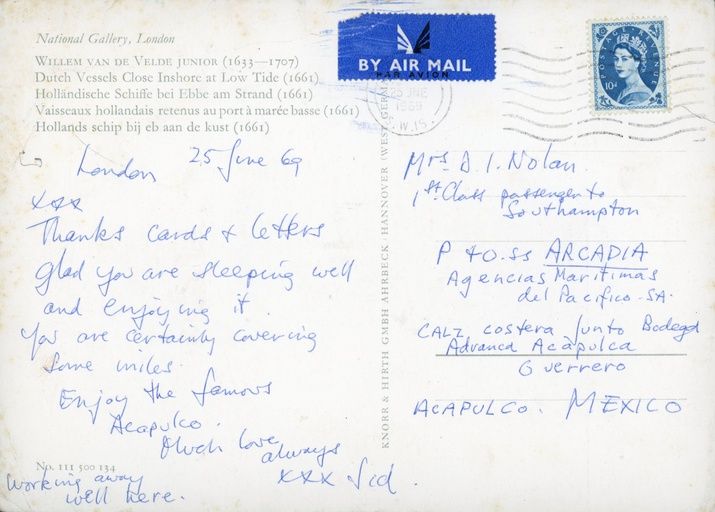 National Gallery, London
WILLEM VAN DE VELDE JUNIOR (1633—1707)
Dutch Vessels Close Inshore at Low Tide (1661)
Holländische Schiffe bei Ebbe am Strand (1661)
Vaisseaux hollandais retenus au port à marée basse (1661)
Hollands schip bij eb aan de kust (1661)
London 25 June 69
xxx
Thanks cards & letters
Glad you are sleeping well
and enjoying it.
You are certainly covering
some miles.
Enjoy the famous
Acapulco.
Much love
always
xxx Sid.
No. 111 500 134
Working away
well here.
KNORR & HIRTH GMBH AHRBECK HANNOVER (WEST GERM
BY AIR MAIL
PAR AVION
25 JNE
1969
S.W.15.
POSTAGE REVENUE
10d
Mrs D. I. Nolan.
1st Class passenger to
Southampton
P & O. SS ARCADIA
Agencias Maritimas
del Pacifico. SA.
CALZ costera Junto Bodega
Advanca Acapulca
Guerrero
ACAPULCO. MEXICO